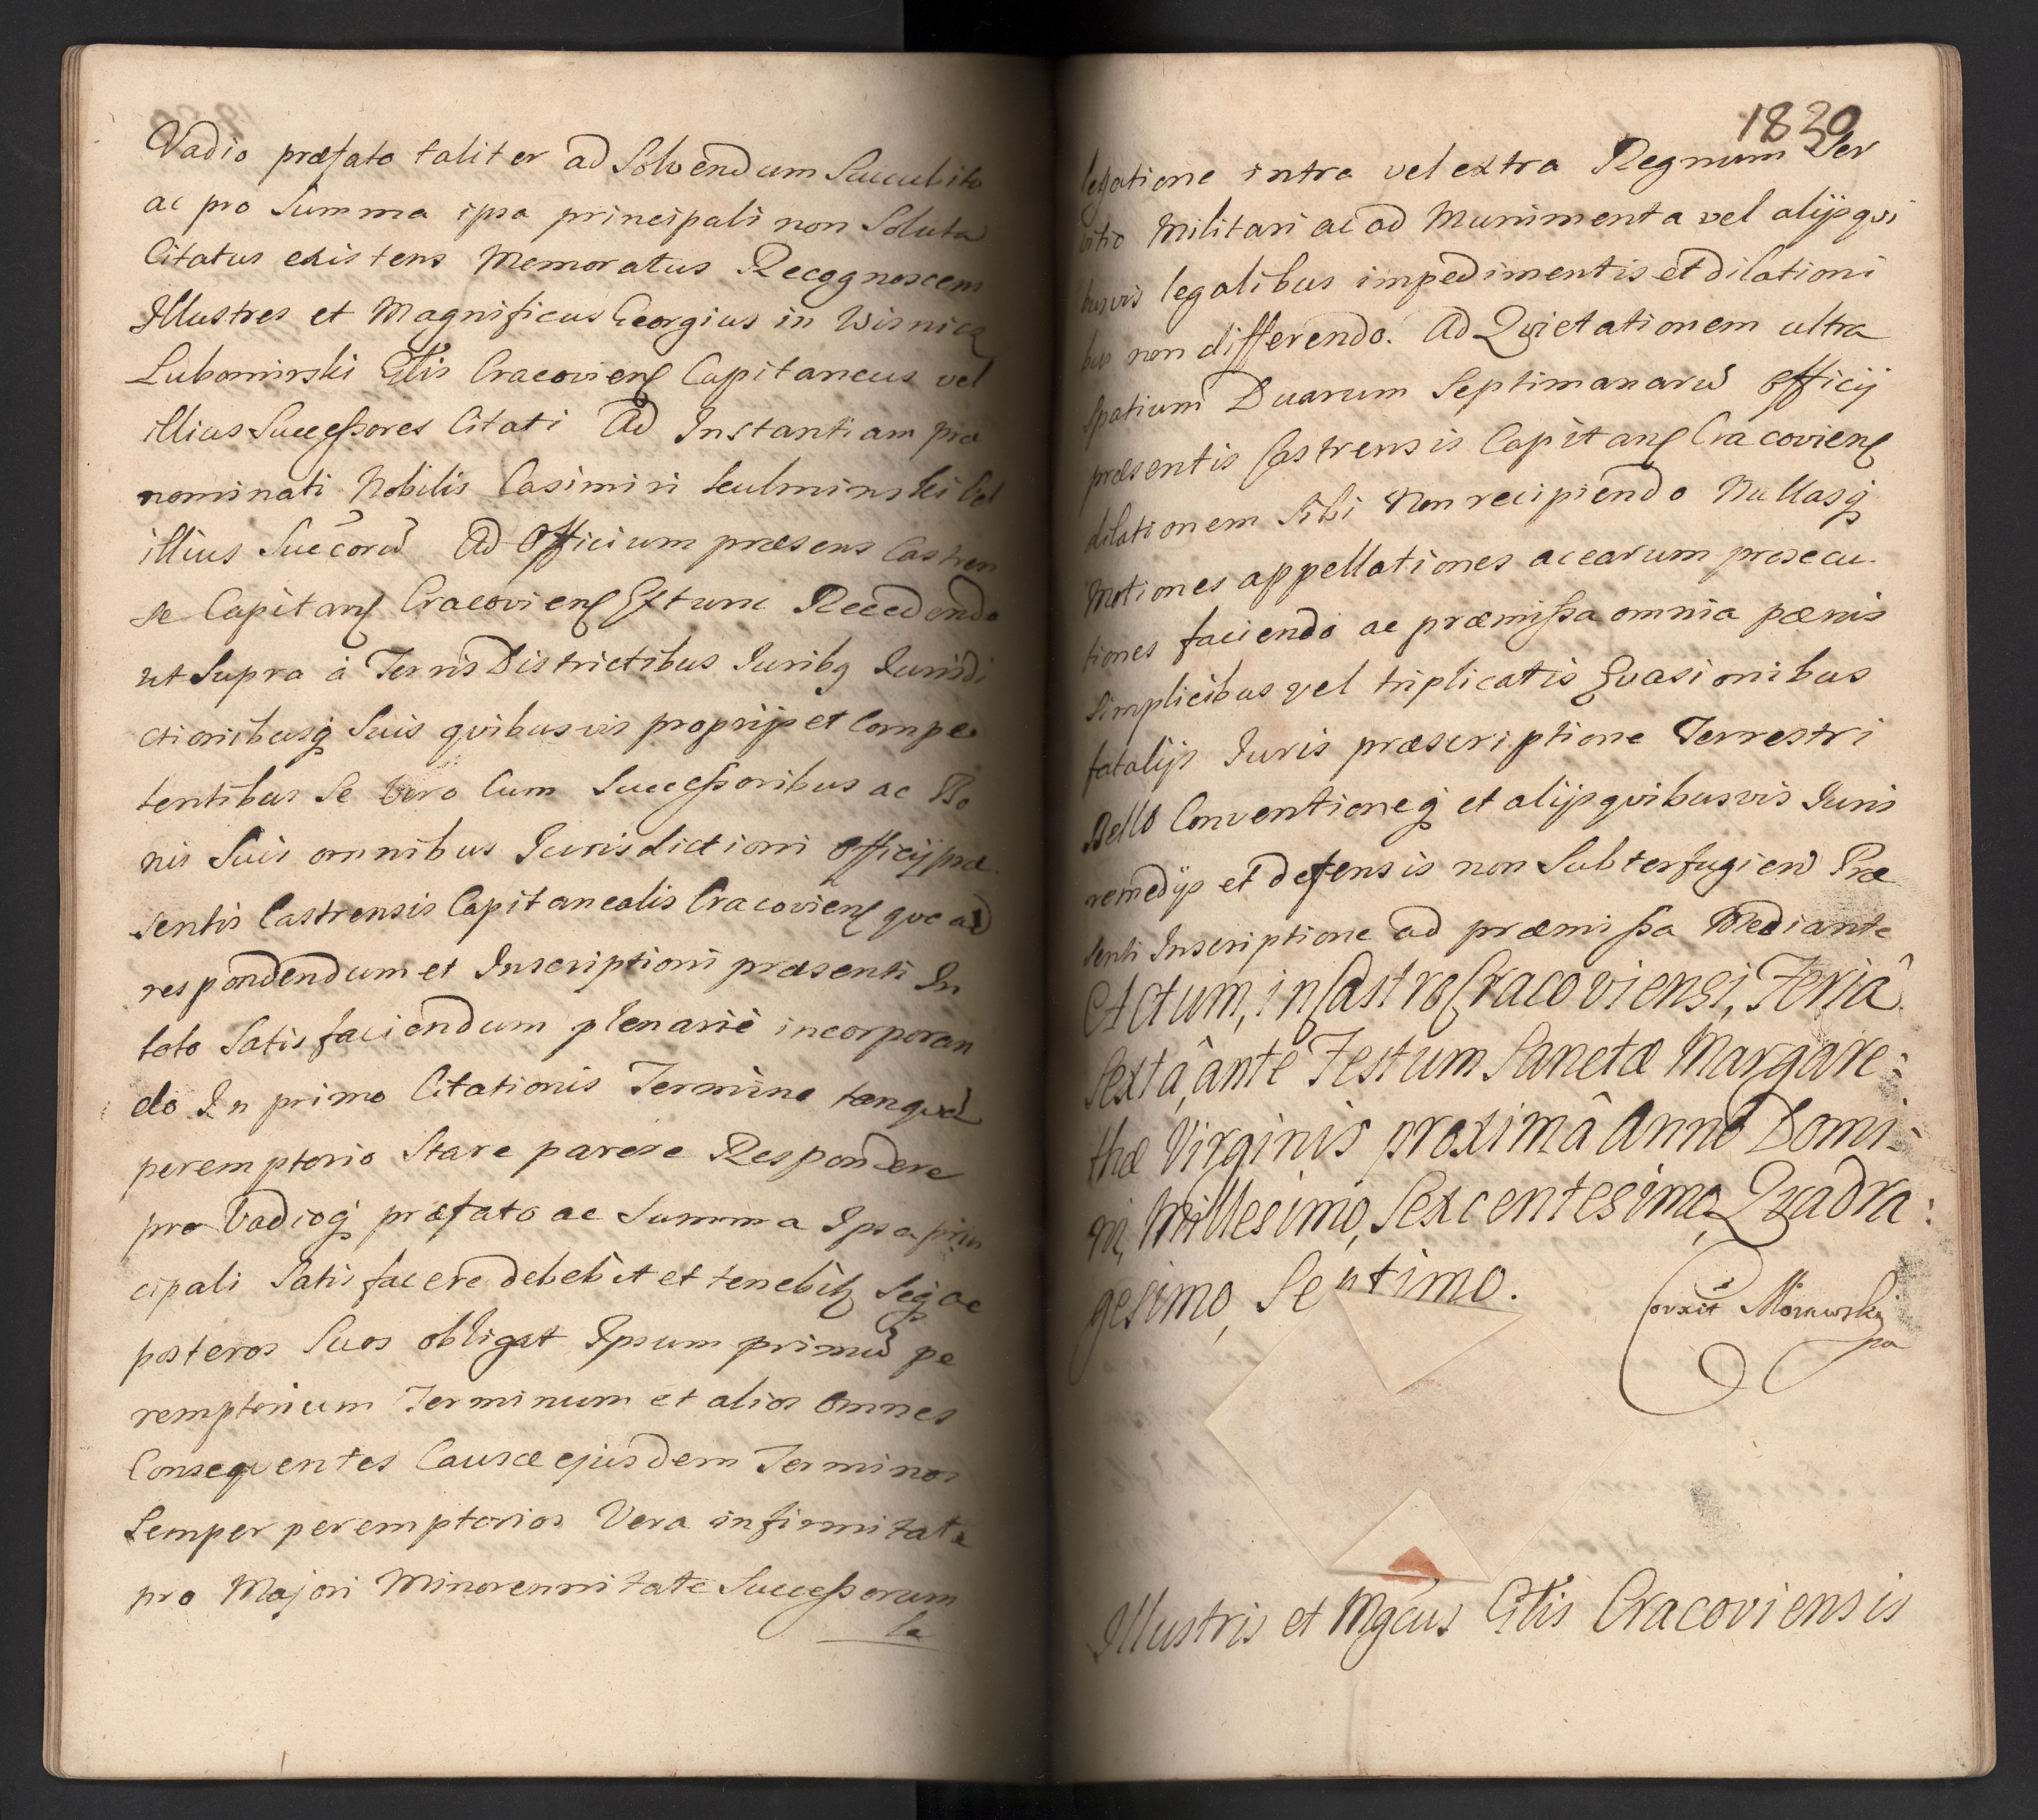 Vadio præfato taliter ad Solvendum Succubito
ac pro Summa ipsa principali non Soluta
Citatus existens Memoratus Recognoscens
Illustres et Magnificus Georgius in Wisnicz
Lubomirski Gnlis Cracovien Capitaneus vel
illius Successores Citati Ad Instantiam præ
nominati Nobilis Casimiri
illius Succorũ Ad Officium præsens Castren
se Capitan Cracovien Extunc Recedendo
ut Supra à Terris Districtibus Juribq Jurisdi
ctionibusq Suis qvibusvis proprijs et Compe
tentibus Se Vero Cum Successoribus ac Bo
nis Suis omnibus Jurisdictioni Officij præ
sentis Castrensis Capitanealis Cracovien qve ad
respondendum et Inscriptioni præsenti In
toto Satisfaciendum plenariè incorporan
do In primo Citationis Termino tanqvã
peremptorio Stare parere Respondere
pro Vadioq præfato ac Summa Ipsa prin
cipali Satisfacere debebit et tenebitq Seq ac
posteros Suos obligat Ipsum primũ pe
remptorium Terminum et alios Omnes
Conseqventes Causæ ejusdem Terminos
Semper peremptorios Vera infirmitate
pro Majori Minorennitate Successorum
le
1830
legatione intra vel extra Regnum Ser
vitio Militari ac ad Munimenta vel alijs qvi
busvis legalibus impedimentis et dilationi
bus non differendo. Ad Qvietationem ultra
Spatium Duarum Septimanarũ Officij
præsentis Castrensis Capitan Cracovien
dilationem Sibi Non recipiendo Nullasq
Motiones appellationes ac earum prosecu
tiones faciendo ac præmissa omnia pænis
Simplicibus vel triplicatis Evasionibus
fatalijs Juris præscriptione Terrestri
Bello Conventioneq et alijs qvibusvis Juris
remedijs et defensis non Subterfugien Præ
senti Inscriptione ad præmissa Mediante
Actum, in Castro Cracoviensi, Feriâ
Sextâ, ante Festum Sanctæ Margare:
thæ Virginis proximâ Anno Domi:
ni, Millesimo, Sexcentesimo, Qvadra:
gesimo, Septimo.
Corxit Morawski
pa
Illustris et Mgcus Gnlis Cracoviensis